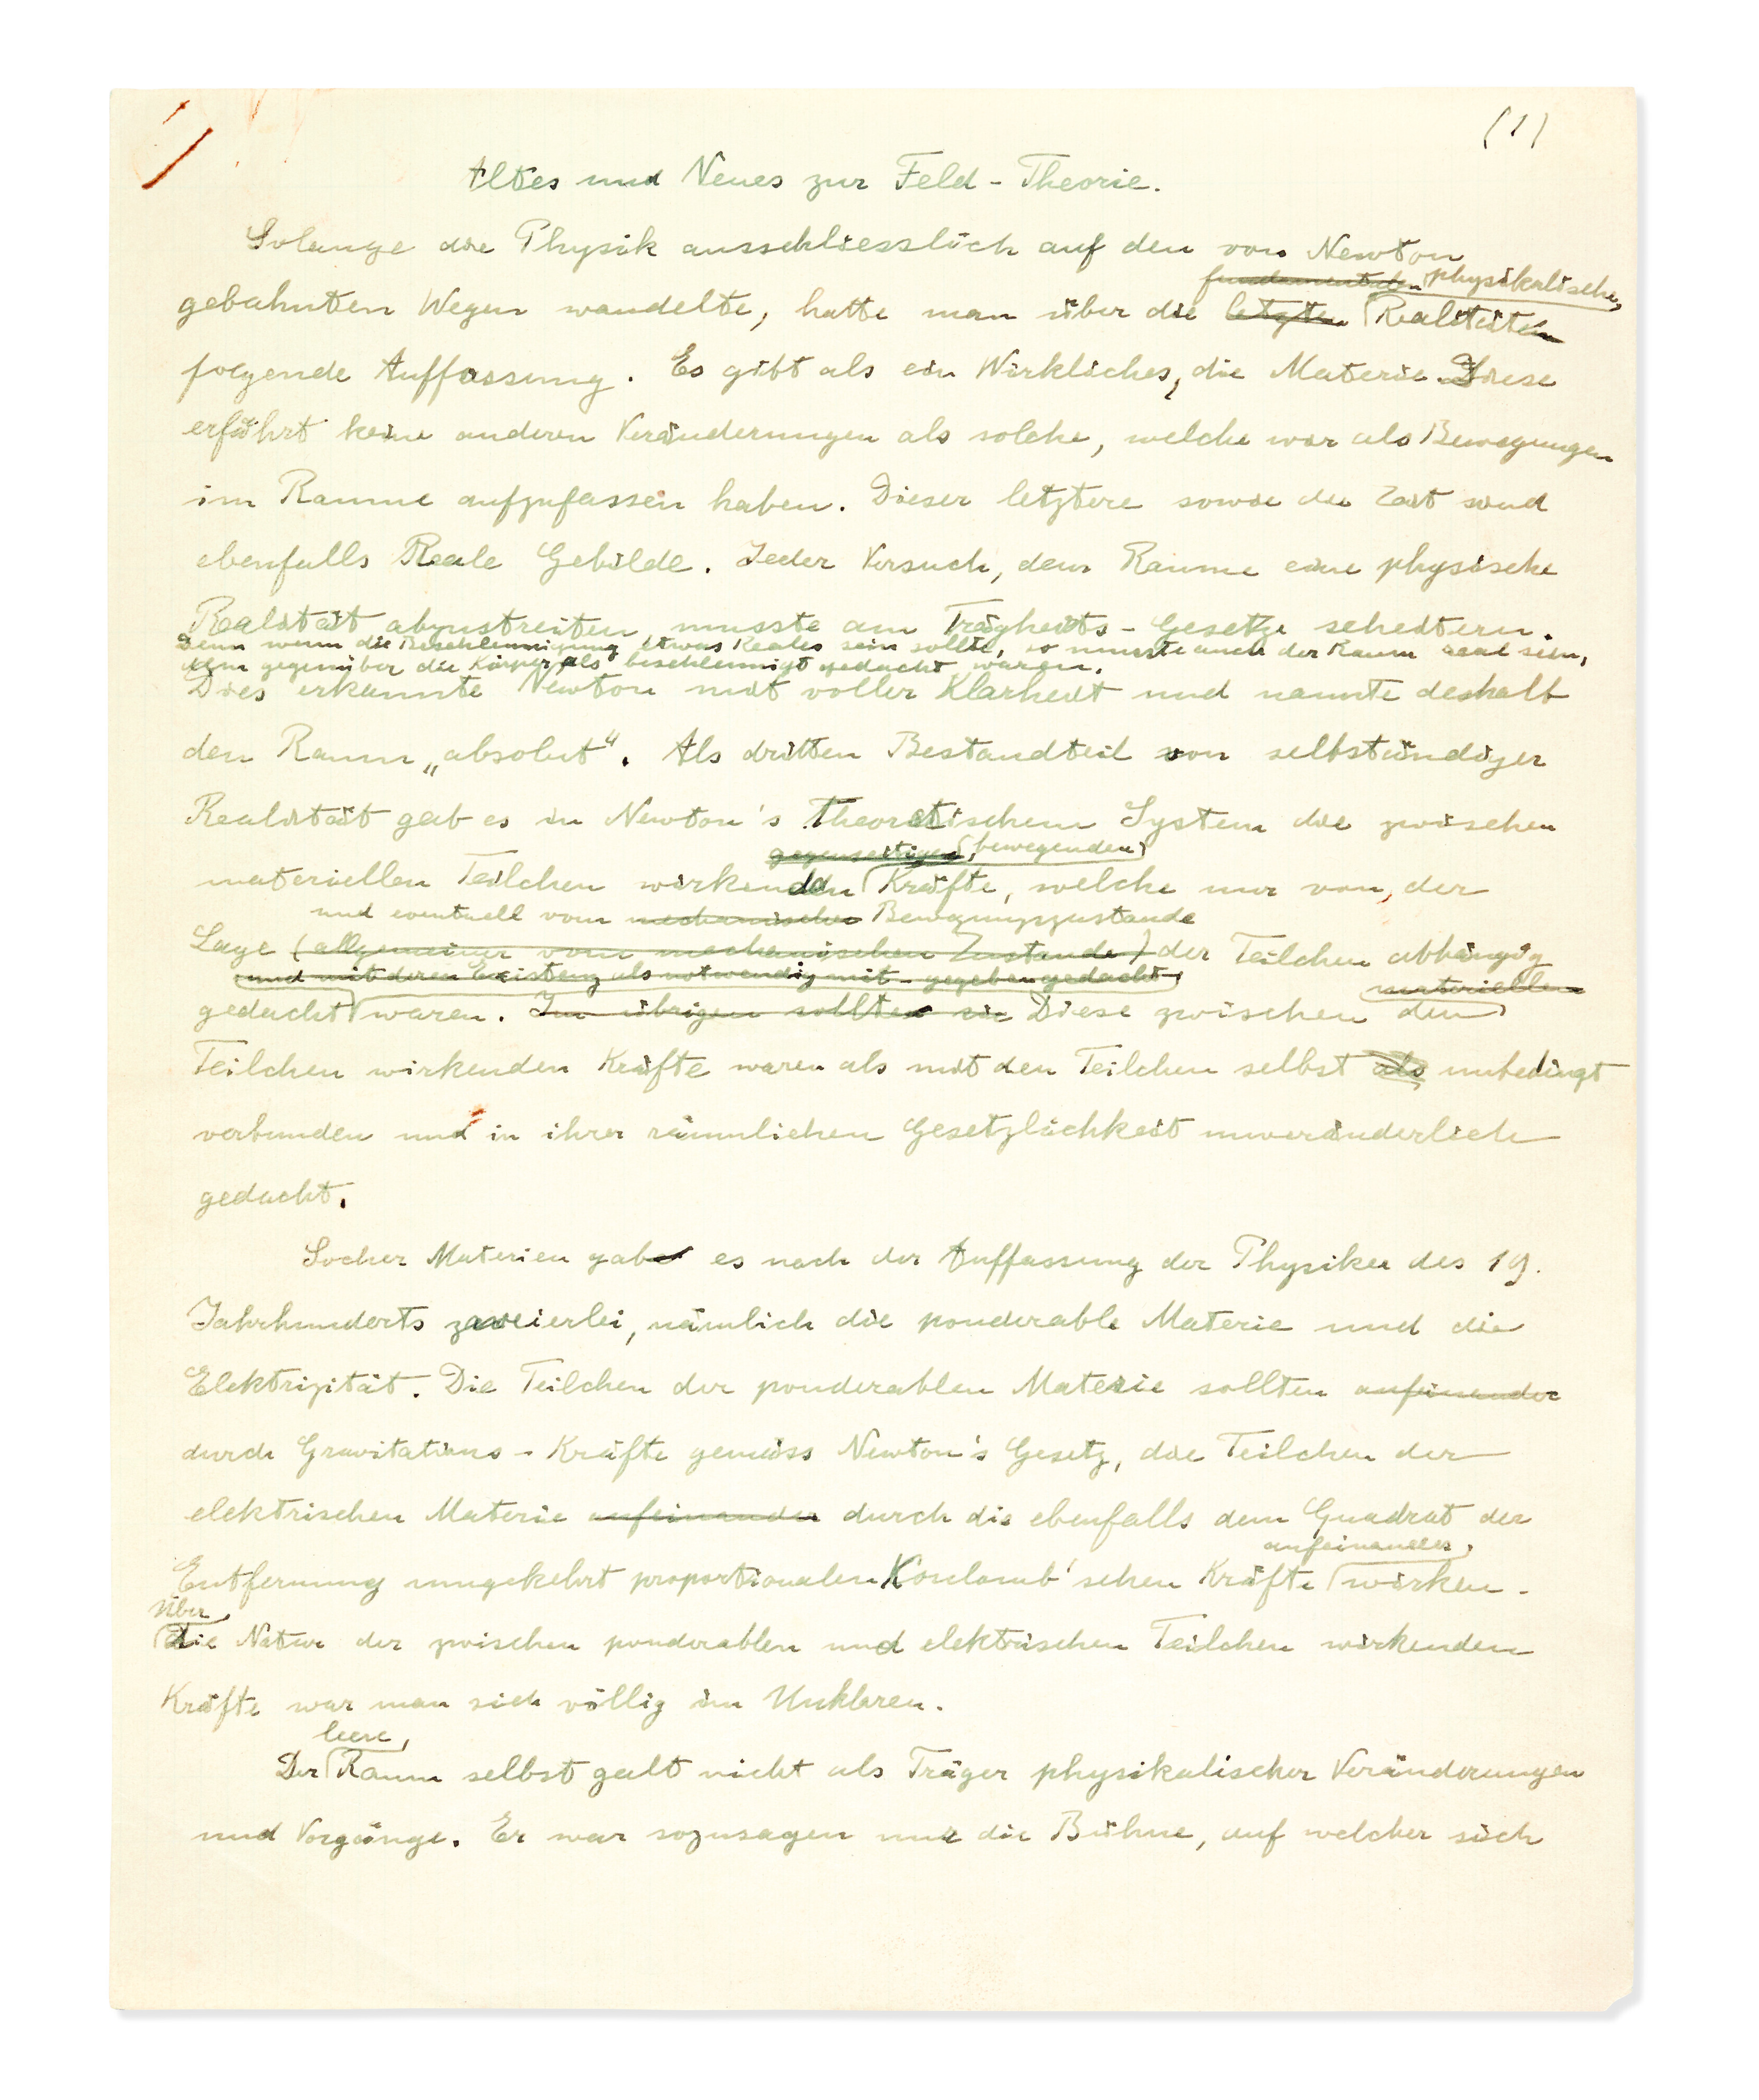 (1)
Altes und Neues zur Feld-Theorie.
Solange die Physik ausschliesslich auf den von Newton
fundamentalen physikalische
gebahnten Wegen wandelte, hatte man über die letzten Realitäten
folgende Auffassung. Es gibt als ein Wirkliches, die Materie. Diese
erfährt keine anderen Veränderungen als solche, welche wir als Bewegungen
im Raume aufzufassen haben. Dieser letztere sowie die Zeit sind
ebenfalls Reale Gebilde. Jeder Versuch, dem Raume eine physische
Realität abzustreiten, musste am Trägheits-Gesetze scheitern.
Denn wenn die Beschleunigung etwas Reales sein sollte, so musste auch der Raum real sein,
dem gegenüber die Körper als beschleunigt gedacht waren.
Dies erkannte Newton mit voller Klarheit und nannte deshalb
den Raum „absolut“. Als dritten Bestandteil von selbständiger
Realität gab es in Newton's Theoretischem System die zwischen
gegenseitigen bewegenden
materiellen Teilchen wirkenden Kräfte, welche nur von der
und eventuell vom mechanischen Bewegungszustande
Lage (allgemeiner vom mechanischen Zustande) der Teilchen abhängig
und mit deren Existenz als notwendig mit-gegeben gedacht
materiellen
gedacht waren. Im übrigen sollten sie Diese zwischen den
Teilchen wirkenden Kräfte waren als mit den Teilchen selbst als unbedingt
verbunden und in ihrer räumlichen Gesetzlichkeit unveränderlich
gedacht.
Socher Materien gab es nach der Auffassung der Physiker des 19.
Jahrhunderts zweierlei, nämlich die ponderable Materie und die
Elektrizität. Die Teilchen der ponderablen Materie sollten aufeinander
durch Gravitations-Kräfte gemäss Newton's Gesetz, die Teilchen der
elektrischen Materie aufeinander durch die ebenfalls dem Quadrat der
aufeinander
Entfernung umgekehrt proportionalen Koulomb'schen Kräfte wirken.
Über
die Natur der zwischen ponderablen und elektrischen Teilchen wirkenden
Kräfte war man sich völlig im Unklaren.
leere
Der Raum selbst galt nicht als Träger physikalischer Veränderungen
und Vorgänge. Er war sozusagen nur die Bühne, auf welcher sich